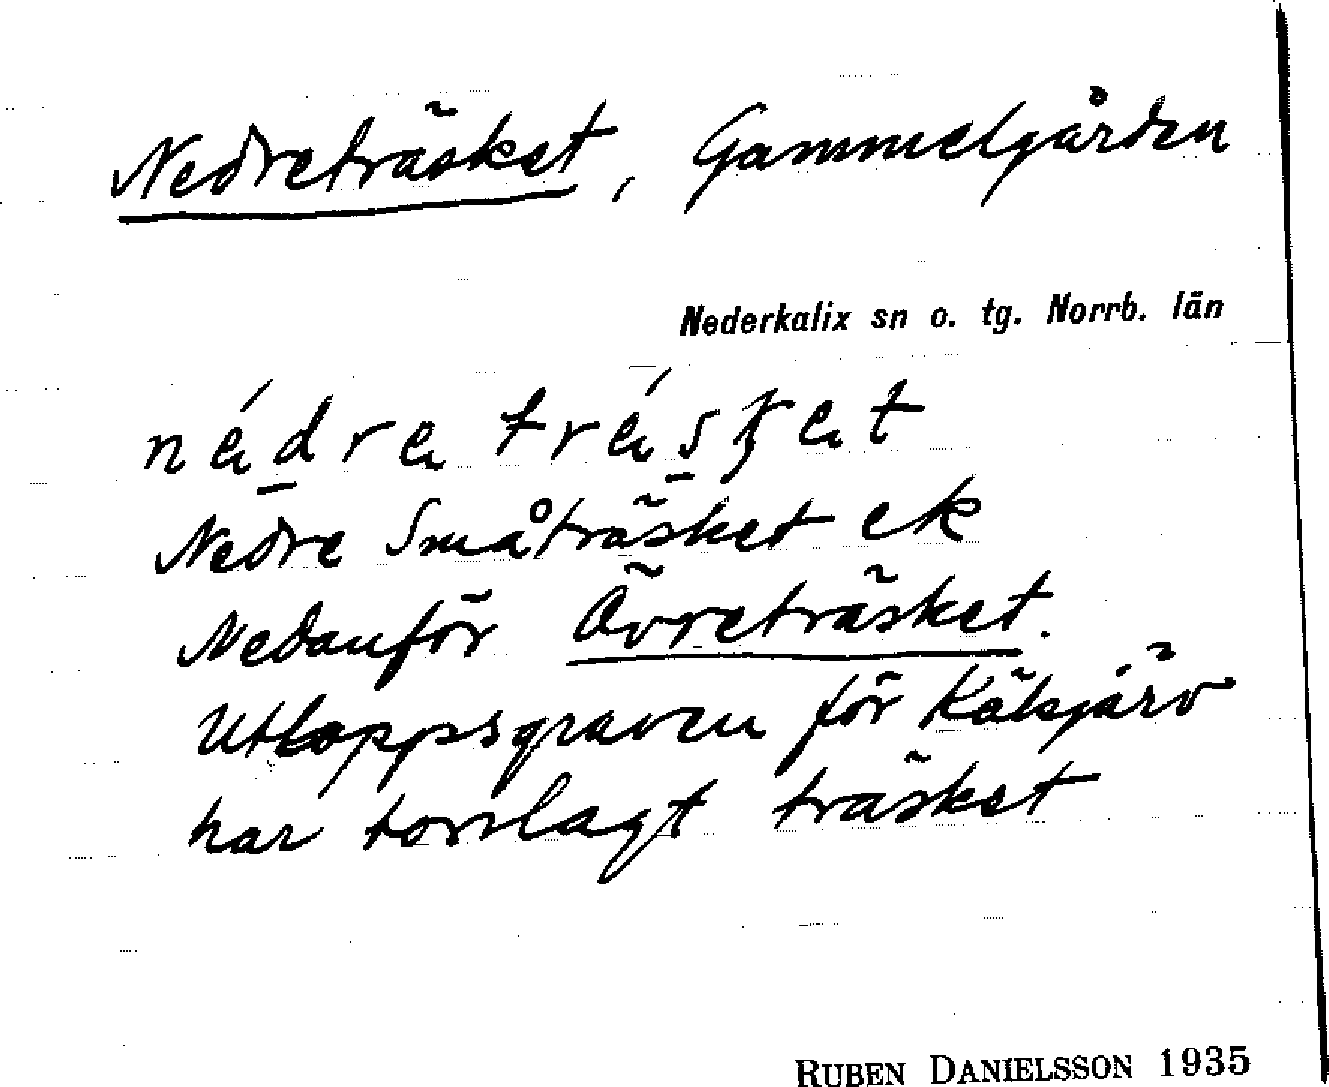 Nedreträsket, Gammelgården
Nederkalix sn o. tg. Norrb. län
Nedre Småträsket ek
Nedanför Övreträsket.
Utloppsgraven för Kälsjärv
har torrlagt träsket
RUBEN DANIELSSON 1935